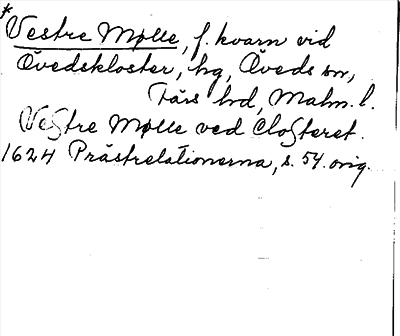 * Vestre Mølle, f. kvarn vid
Övedskloster, hg, Öveds sn,
Färs hd, Malm. l.
Veſtre Mølle ved Cloſteret.
1624 Prästrelationerna, s. 54. orig.